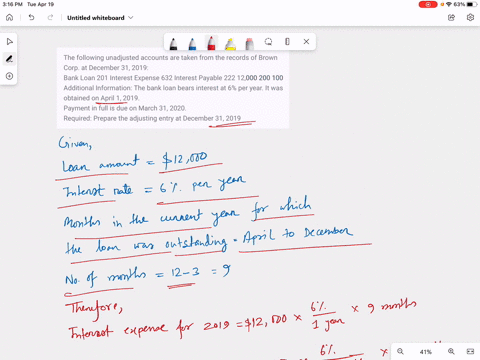 3:16 PM Tue Apr 19
63%
Untitled whiteboard
The following unadjusted accounts are taken from the records of Brown
Corp. at December 31, 2019:
Bank Loan 201 Interest Expense 632 Interest Payable 222 12,000 200 100
Additional Information: The bank loan bears interest at 6% per year. It was
obtained on April 1, 2019.
Payment in full is due on March 31, 2020.
Required: Prepare the adjusting entry at December 31, 2019
Given,
Loan amount = $12,000
Interest rate = 6% per year
Months in the current year for which
the loan was outstanding = April to December
No. of months = 12-3 = 9
Therefore,
Interest expense for 2019 = $12,000 × 6% / 1 year × 9 months
6%
41%